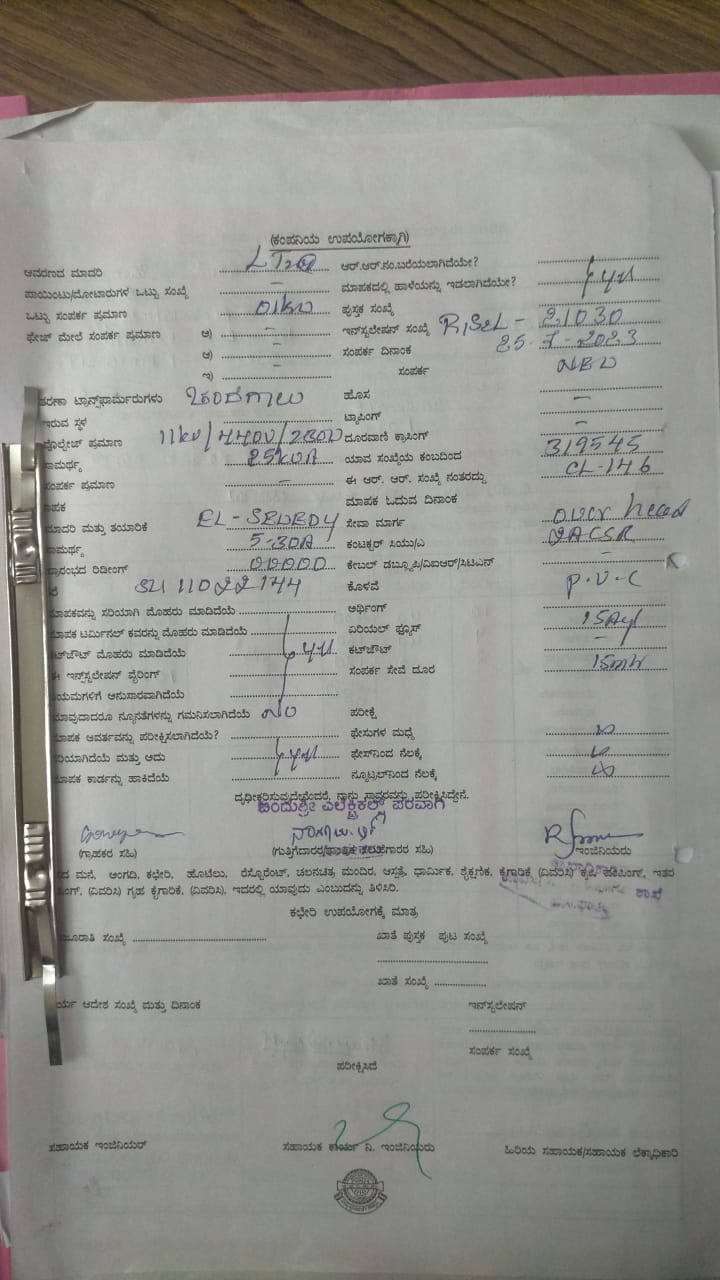 (ಕಂಪನಿಯ ಉಪಯೋಗಕ್ಕಾಗಿ)
ಆವರಣದ ಮಾದರಿ LT2 ಆರ್.ಆರ್.ನಂ.ಬರೆಯಲಾಗಿದೆಯೇ?
ಪಾಯಿಂಟು/ಮೋಟಾರುಗಳ ಒಟ್ಟು ಸಂಖ್ಯೆ – ಮಾಪಕದಲ್ಲಿ ಹಾಳೆಯನ್ನು ಇಡಲಾಗಿದೆಯೇ? yes
ಒಟ್ಟು ಸಂಪರ್ಕ ಪ್ರಮಾಣ 01KW ಪುಸ್ತಕ ಸಂಖ್ಯೆ
ಫೇಜ್ ಮೇಲೆ ಸಂಪರ್ಕ ಪ್ರಮಾಣ ಅ) – ಇನ್‌ಸ್ಟಲೇಷನ್ ಸಂಖ್ಯೆ 21030
ಆ) – ಸಂಪರ್ಕ ದಿನಾಂಕ 25-7-2023
ಇ) – ಸಂಪರ್ಕ NEW
ತರಣಾ ಟ್ರಾನ್ಸ್‌ಫಾರ್ಮರುಗಳು ಹೊಸ –
ಇರುವ ಸ್ಥಳ ಟ್ಯಾಪಿಂಗ್ –
ವೊಲ್ಟೇಜ್ ಪ್ರಮಾಣ 11kv/440v/230v ದೂರವಾಣಿ ಕ್ರಾಸಿಂಗ್ –
ಸಾಮರ್ಥ್ಯ 25KVA ಯಾವ ಸಂಖ್ಯೆಯ ಕಂಬದಿಂದ 319545
ಸಂಪರ್ಕ ಪ್ರಮಾಣ – ಈ ಆರ್. ಆರ್. ಸಂಖ್ಯೆ ನಂತರದ್ದು CL-146
ಾಪಕ ಮಾಪಕ ಓದುವ ದಿನಾಂಕ
ಮಾದರಿ ಮತ್ತು ತಯಾರಿಕೆ ಸೇವಾ ಮಾರ್ಗ over head
ಸಾಮರ್ಥ್ಯ 5-30A ಕಂಟಕ್ಟರ್ ಸಿಯು/ಎ 2ACSR
ಪ್ರಾರಂಭದ ರಿಡೀಂಗ್ 00000 ಕೇಬಲ್ ಡಬ್ಲ್ಯೂಪಿ/ವಿಐಆರ್/ಸಿಟಿಎನ್ –
11022144 ಕೊಳವೆ P.V.C
ಮಾಪಕವನ್ನು ಸರಿಯಾಗಿ ಮೊಹರು ಮಾಡಿದೆಯೆ ಅರ್ಥಿಂಗ್
ಮಾಪಕ ಟರ್ಮಿನಲ್ ಕವರನ್ನು ಮೊಹರು ಮಾಡಿದೆಯೆ ಏರಿಯಲ್ ಫ್ಯೂಸ್
ಕಟ್‌ಔಟ್ ಮೊಹರು ಮಾಡಿದೆಯೆ yes ಕಟ್‌ಔಟ್ –
ಈ ಇನ್‌ಸ್ಟಲೇಷನ್ ವೈರಿಂಗ್ ಸಂಪರ್ಕ ಸೇವೆ ದೂರ
ಯಮಗಳಿಗೆ ಅನುಸಾರವಾಗಿದೆಯೆ
ಯಾವುದಾದರೂ ನ್ಯೂನತೆಗಳನ್ನು ಗಮನಿಸಲಾಗಿದೆಯೆ No ಪರೀಕ್ಷೆ
ಮಾಪಕ ಆವರ್ತವನ್ನು ಪರೀಕ್ಷಿಸಲಾಗಿದೆಯೆ? ಫೇಸುಗಳ ಮಧ್ಯೆ
ಸರಿಯಾಗಿದೆಯೆ ಮತ್ತು ಅದು yes ಫೇಸ್‌ನಿಂದ ನೆಲಕ್ಕೆ
ಮಾಪಕ ಕಾರ್ಡನ್ನು ಹಾಕಿದೆಯೆ ನ್ಯೂಟ್ರಲ್‌ನಿಂದ ನೆಲಕ್ಕೆ
ದೃಢೀಕರಿಸುವುದೇನೆಂದರೆ, ನಾನು ಸ್ಥಾವರವನ್ನು ಪರೀಕ್ಷಿಸಿದ್ದೇನೆ.
ಬಿಂದುಶ್ರೀ ಎಲೆಕ್ಟ್ರಿಕಲ್ಸ್ ಪರವಾಗಿ
(ಗ್ರಾಹಕರ ಸಹಿ) ಇಂಜಿನಿಯರು
ದ ಮನೆ, ಅಂಗಡಿ, ಕಛೇರಿ, ಹೊಟೇಲು, ರೆಸ್ಟೋರೆಂಟ್, ಚಲನಚಿತ್ರ ಮಂದಿರ, ಆಸ್ಪತ್ರೆ, ಧಾರ್ಮಿಕ, ಶೈಕ್ಷಣಿಕ, ಕೈಗಾರಿಕೆ (ವಿವರಿಸಿ) ಕೃಷಿ ಪಂಪಿಂಗ್, ಇತರ
ಿಂಗ್, (ವಿವರಿಸಿ) ಗೃಹ ಕೈಗಾರಿಕೆ, (ವಿವರಿಸಿ), ಇದರಲ್ಲಿ ಯಾವುದು ಎಂಬುದನ್ನು ತಿಳಿಸಿರಿ.
ಶಾಖೆ
ಕಛೇರಿ ಉಪಯೋಗಕ್ಕೆ ಮಾತ್ರ
ಜೂರಾತಿ ಸಂಖ್ಯೆ ಖಾತೆ ಪುಸ್ತಕ ಪುಟ ಸಂಖ್ಯೆ
ಖಾತೆ ಸಂಖ್ಯೆ
ರ್ಯ ಆದೇಶ ಸಂಖ್ಯೆ ಮತ್ತು ದಿನಾಂಕ ಇನ್‌ಸ್ಟಲೇಷನ್
ಸಂಪರ್ಕ ಸಂಖ್ಯೆ
ಪರೀಕ್ಷಿಸಿದೆ
ಸಹಾಯಕ ಇಂಜಿನಿಯರ್ ಸಹಾಯಕ ಕಾರ್ಯ ನಿ. ಇಂಜಿನಿಯರು ಹಿರಿಯ ಸಹಾಯಕ/ಸಹಾಯಕ ಲೆಕ್ಕಾಧಿಕಾರಿ